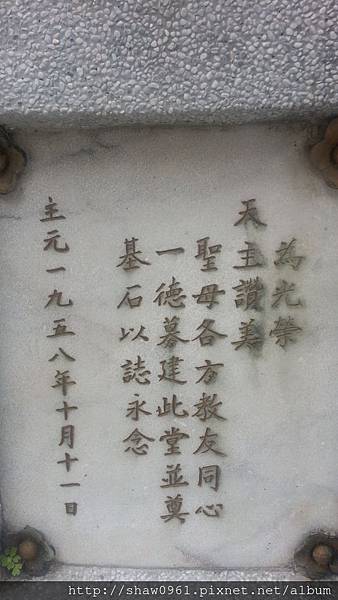 為光榮
天主讚美
聖母各方教友同心
一德募建此堂並奠
基石以誌永念
主元一九五八年十月十一日
http://shaw0961.pixnet.net/album